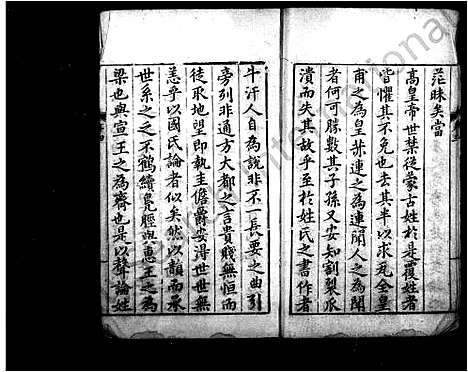 茫昧矣當
高皇帝世禁從蒙古姓於是覆姓者
皆懼其不免也去其半以求凡全皇
甫之為皇赫連之為連聞人之為聞
者何可勝數其子孫又安知割裂瓜
潰而失其故乎至於姓氏之書作者
斗汗人自為說非不一長要之曲引
旁列非通方大都之言貴賤無恒而
徒取地望即執圭儋爵安得世世無
恙乎以國氏論者似矣然以顓而承
世系之乏不鶴續鳧脛與惠王之為
梁也與宣王之為齊也是以聲論姓